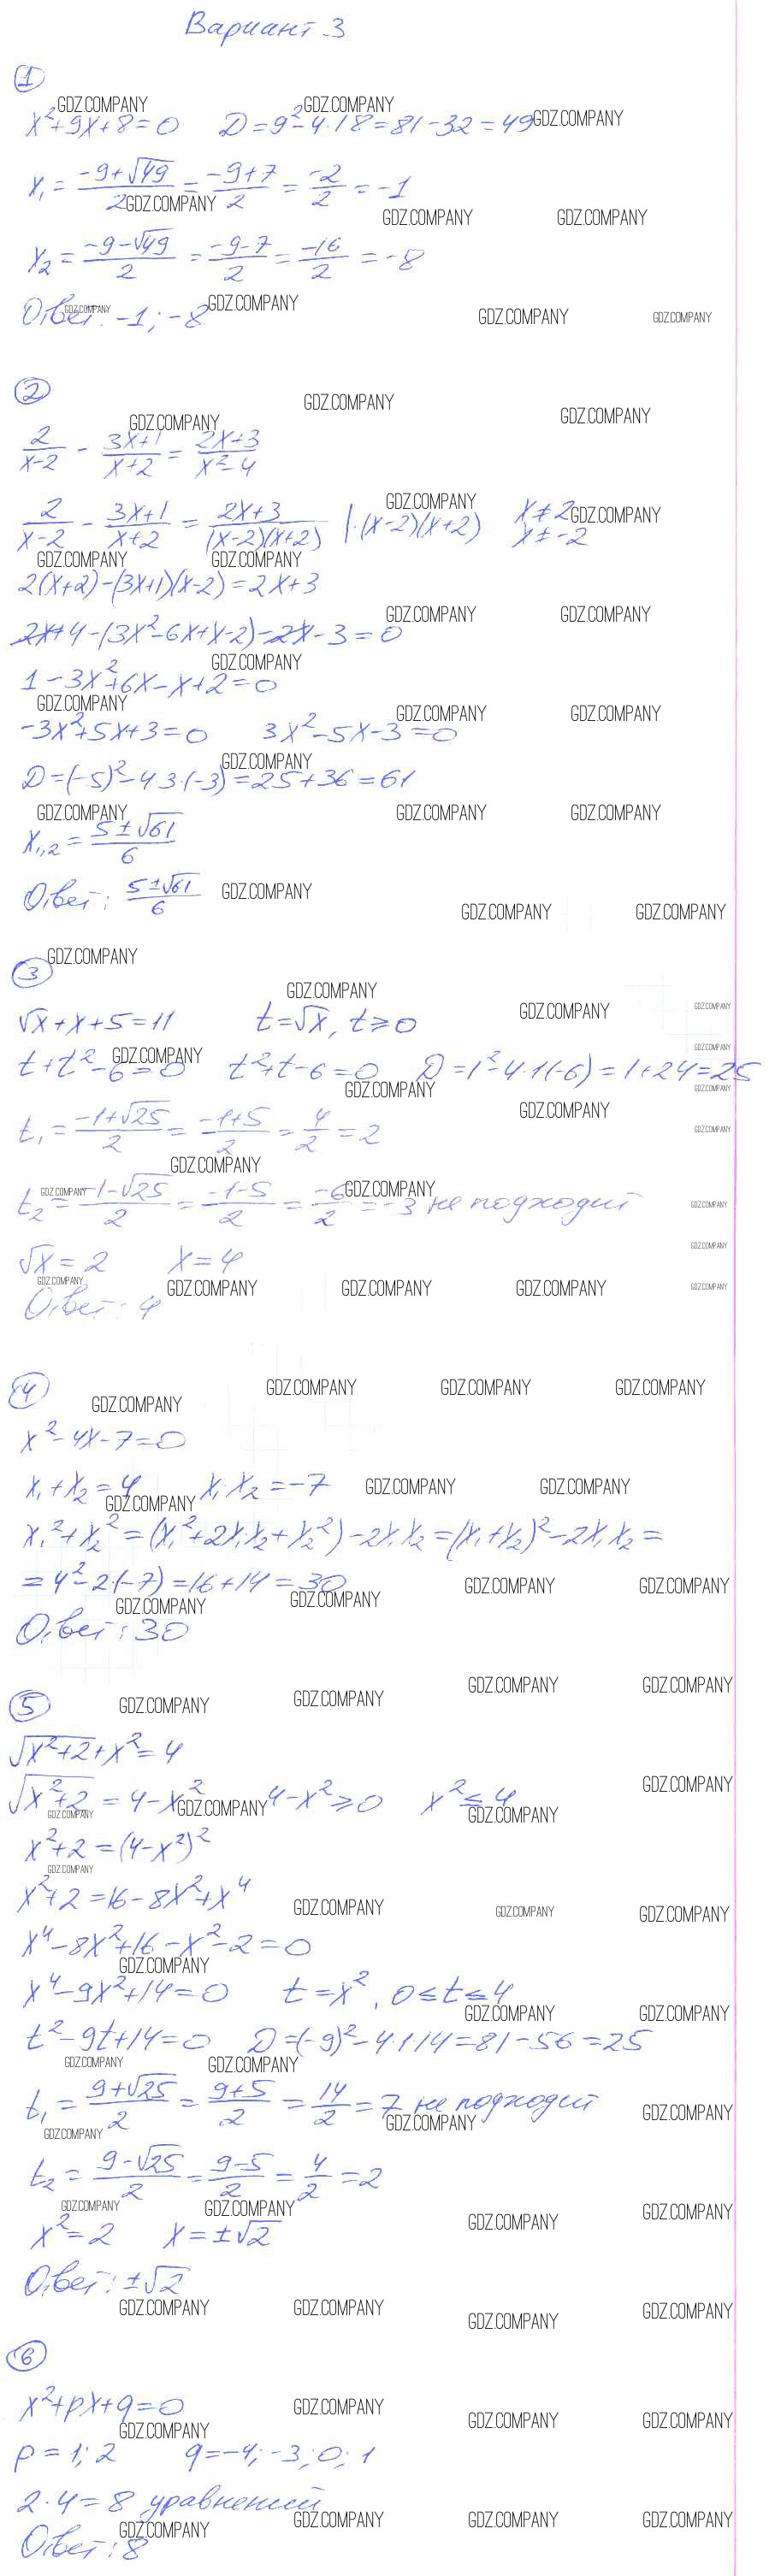 Вариант 3
1
x²+9x+8=0 D=9²-4·1·8=81-32=49
x₁=(-9+√49)/2=(-9+7)/2=-2/2=-1
x₂=(-9-√49)/2=(-9-7)/2=-16/2=-8
Ответ: -1; -8
2
2/(x-2) - (3x+1)/(x+2) = (2x+3)/(x²-4)
2/(x-2) - (3x+1)/(x+2) = (2x+3)/((x-2)(x+2)) |·(x-2)(x+2) x≠2
x≠-2
2(x+2)-(3x+1)(x-2)=2x+3
2x+4-(3x²-6x+x-2)-2x-3=0
1-3x²+6x-x+2=0
-3x²+5x+3=0 3x²-5x-3=0
D=(-5)²-4·3·(-3)=25+36=61
x₁,₂=(5±√61)/6
Ответ: (5±√61)/6
3
√x+x+5=11 t=√x, t≥0
t+t²-6=0 t²+t-6=0 D=1²-4·1·(-6)=1+24=25
t₁=(-1+√25)/2=(-1+5)/2=4/2=2
t₂=(-1-√25)/2=(-1-5)/2=-6/2=-3 не подходит
√x=2 x=4
Ответ: 4
4
x²-4x-7=0
x₁+x₂=4 x₁x₂=-7
x₁²+x₂²=(x₁²+2x₁x₂+x₂²)-2x₁x₂=(x₁+x₂)²-2x₁x₂=
=4²-2·(-7)=16+14=30
Ответ: 30
5
√(x²+2)+x²=4
√(x²+2)=4-x² 4-x²≥0 x²≤4
x²+2=(4-x²)²
x²+2=16-8x²+x⁴
x⁴-8x²+16-x²-2=0
x⁴-9x²+14=0 t=x², 0≤t≤4
t²-9t+14=0 D=(-9)²-4·1·14=81-56=25
t₁=(9+√25)/2=(9+5)/2=14/2=7 не подходит
t₂=(9-√25)/2=(9-5)/2=4/2=2
x²=2 x=±√2
Ответ: ±√2
6
x²+px+q=0
p=1; 2 q=-4; -3; 0; 1
2·4=8 уравнений
Ответ: 8
GDZ.COMPANY